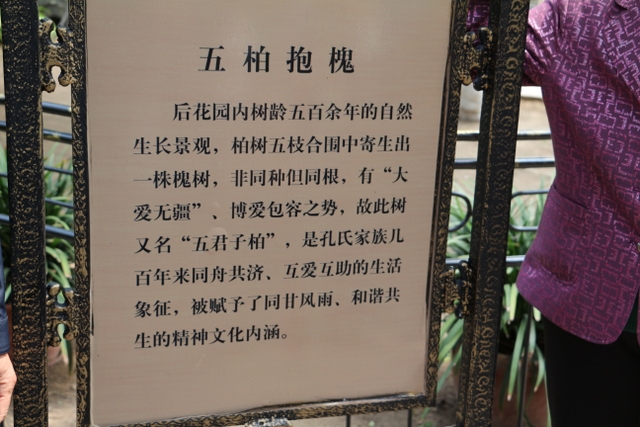 五柏抱槐
后花园内树龄五百余年的自然
生长景观，柏树五枝合围中寄生出
一株槐树，非同种但同根，有“大
爱无疆”、博爱包容之势，故此树
又名“五君子柏”，是孔氏家族几
百年来同舟共济、互爱互助的生活
象征，被赋予了同甘风雨、和谐共
生的精神文化内涵。